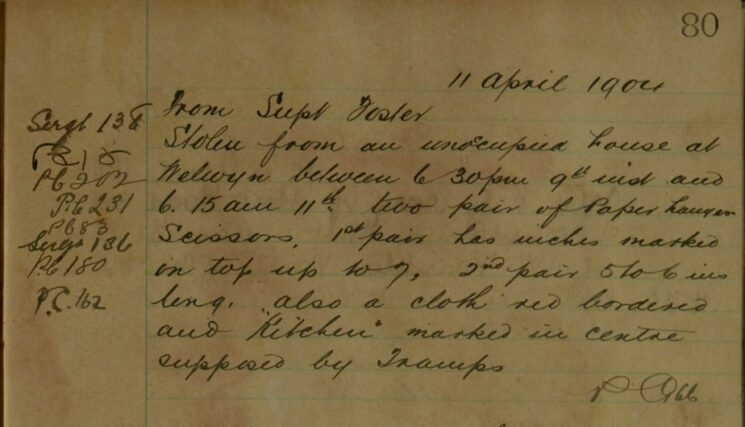 80
11 April 1904
From Supt Foster
Sergt 138
Stolen from an unocupied house at
PC 202
Welwyn between 6 30pm 9th inst and
PC 231
6. 15am 11th. two pair of Paper hangers
PC 83
Scissors, 1st pair has inches marked
Sergt 136
PC 180
on top up to 7, 2nd pair 5 to 6 ins
P.C. 162
long. also a cloth red bordered
and "Kitchen" marked in centre
supposed by Tramps